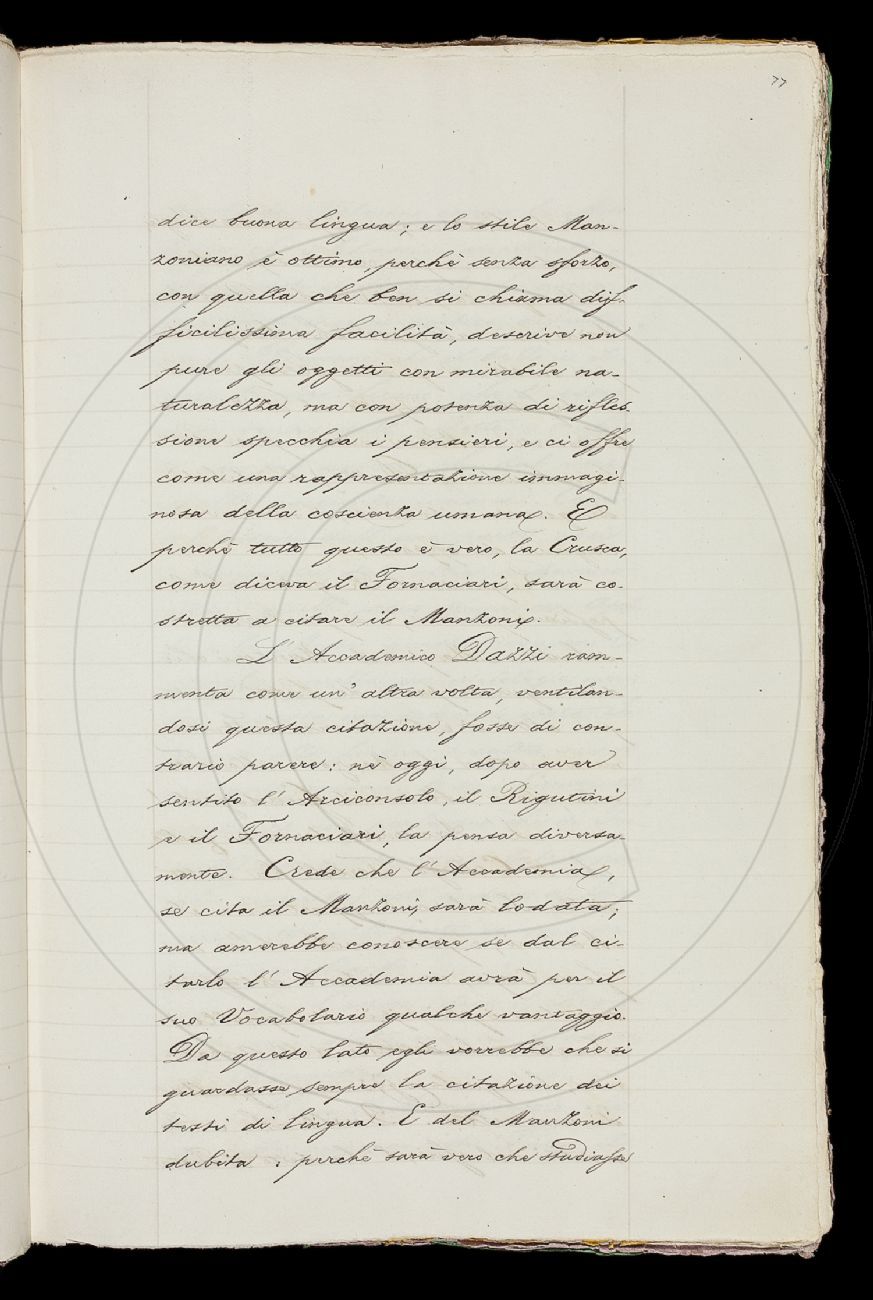 77
dice buona lingua; e lo stile Man-
zoniano è ottimo, perchè senza sforzo,
con quella che ben si chiama dif-
ficilissima facilità, descrive non
pure gli oggetti con mirabile na-
turalezza, ma con potenza di rifles-
sione specchia i pensieri, e ci offre
come una rappresentazione immagi-
nosa della coscienza umana. E
perchè tutto questo è vero, la Crusca,
come diceva il Fornaciari, sarà co-
stretta a citare il Manzoni.
L'Accademico Dazzi ram-
menta come un'altra volta, ventilan-
dosi questa citazione, fosse di con-
trario parere: nè oggi, dopo aver
sentito l'Arciconsolo, il Rigutini
e il Fornaciari, la pensa diversa-
mente. Crede che l'Accademia,
se cita il Manzoni, sarà lodata;
ma amerebbe conoscere se dal ci-
tarlo l'Accademia avrà per il
suo Vocabolario qualche vantaggio.
Da questo lato egli vorrebbe che si
guardasse sempre la citazione dei
testi di lingua. E del Manzoni
dubita: perchè sarà vero che studiasse